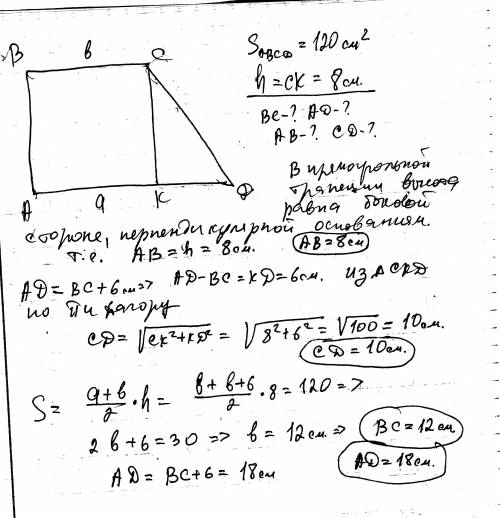 B b C
S_ABCD = 120 см²
h = CK = 8 см.
BC-? AD-?
AB-? CD-?
A a K D
В прямоугольной
трапеции высота
равна боковой
стороне, перпендикулярной основаниям.
т.е. AB = h = 8 см. AB = 8 см
AD = BC + 6 см => AD - BC = KD = 6 см. из Δ CKD
по Пифагору
CD = √CK² + KD² = √8² + 6² = √100 = 10 см.
CD = 10 см.
S = (a + b)/2 · h = (b + b + 6)/2 · 8 = 120 =>
2b + 6 = 30 => b = 12 см => BC = 12 см
AD = BC + 6 = 18 см AD = 18 см.